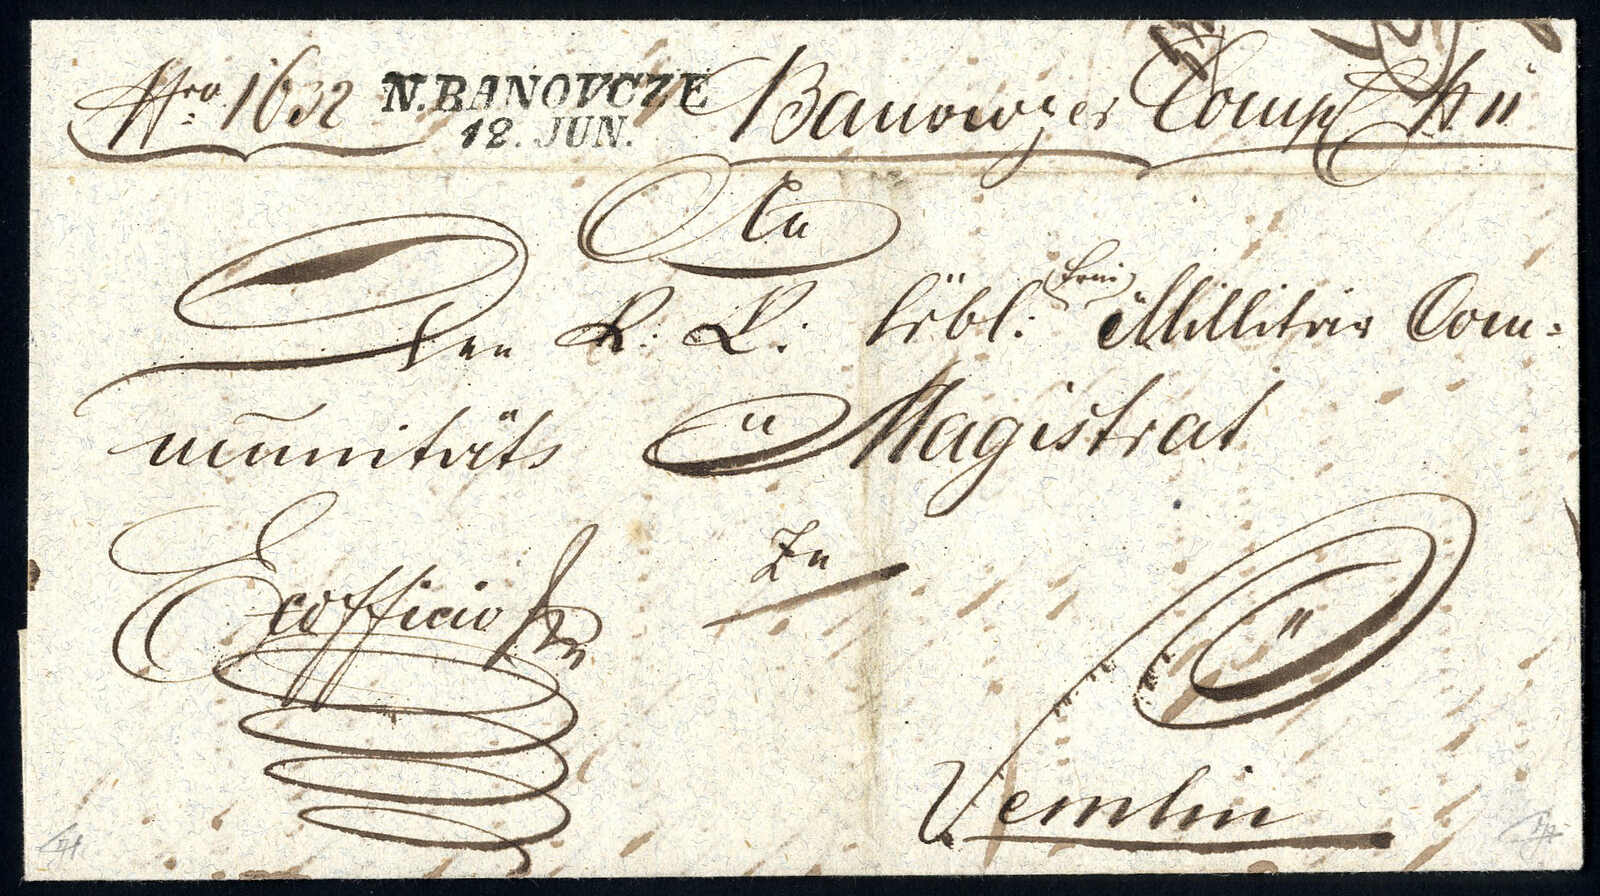 Nro 1632 N. BANOVCZE Banovczer Comp
12. JUN.
An
Den K: K: löbl: frei Millitär Com=
munitäts Magistrat
Exofficio
Zu
Semlin